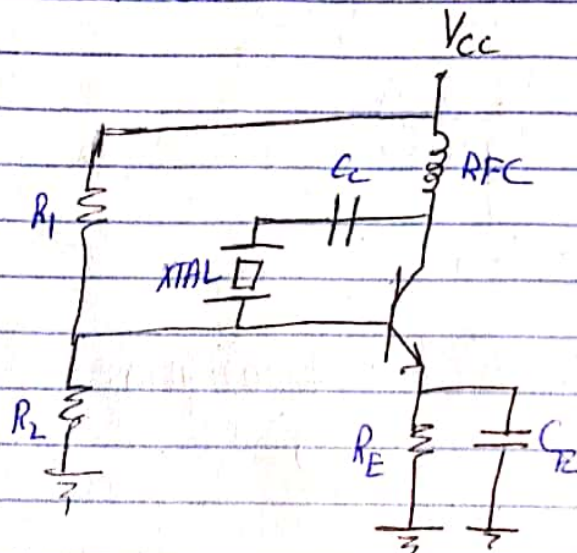 Vcc
RFC
Cc
R1
XTAL
R2
RE
CE